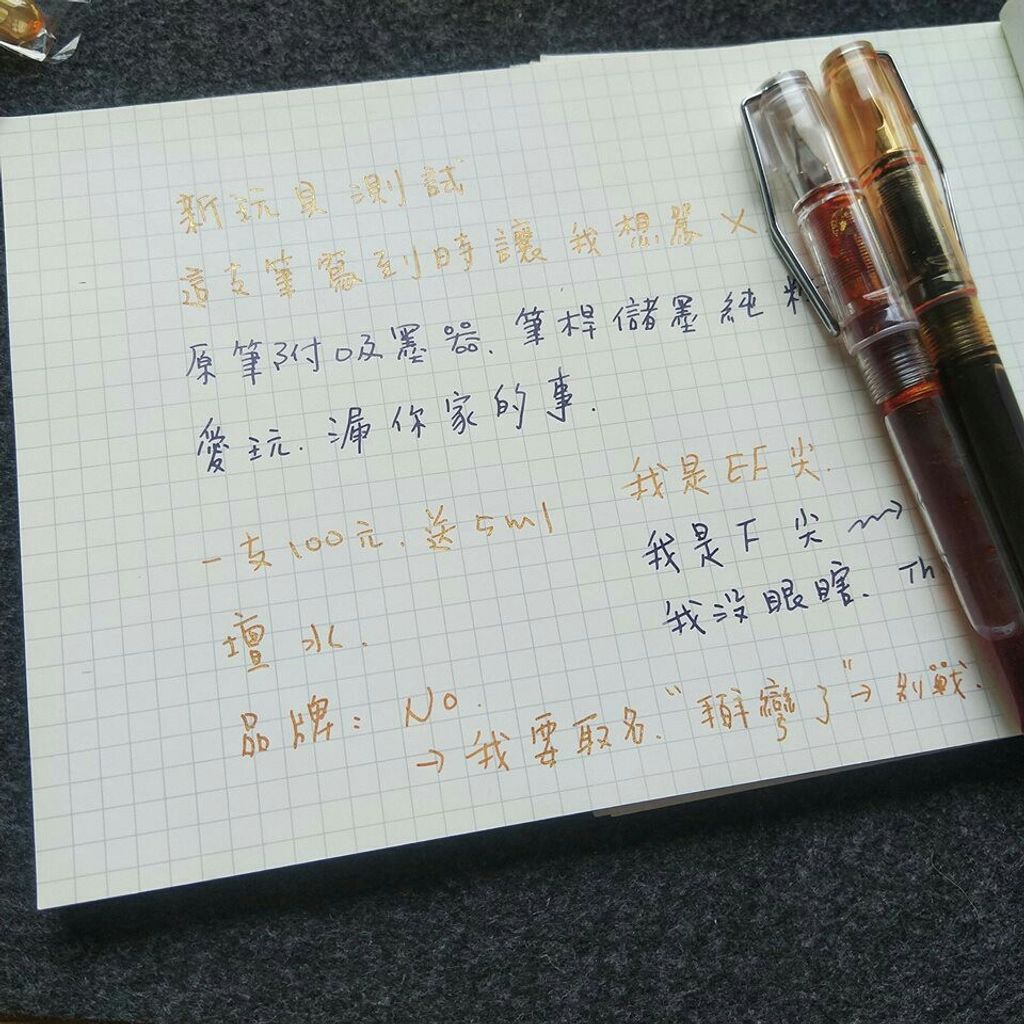 新玩具測試
這支筆寫到時讓我想罵ㄨ
原筆附吸墨器.筆桿儲墨純粹
愛玩.漏你家的事.
一支100元.送5ml
壇水.
品牌：No.
我是EF尖.
我是F尖→
我沒眼瞎. Th
→我要取名."掰彎了"→別戰.